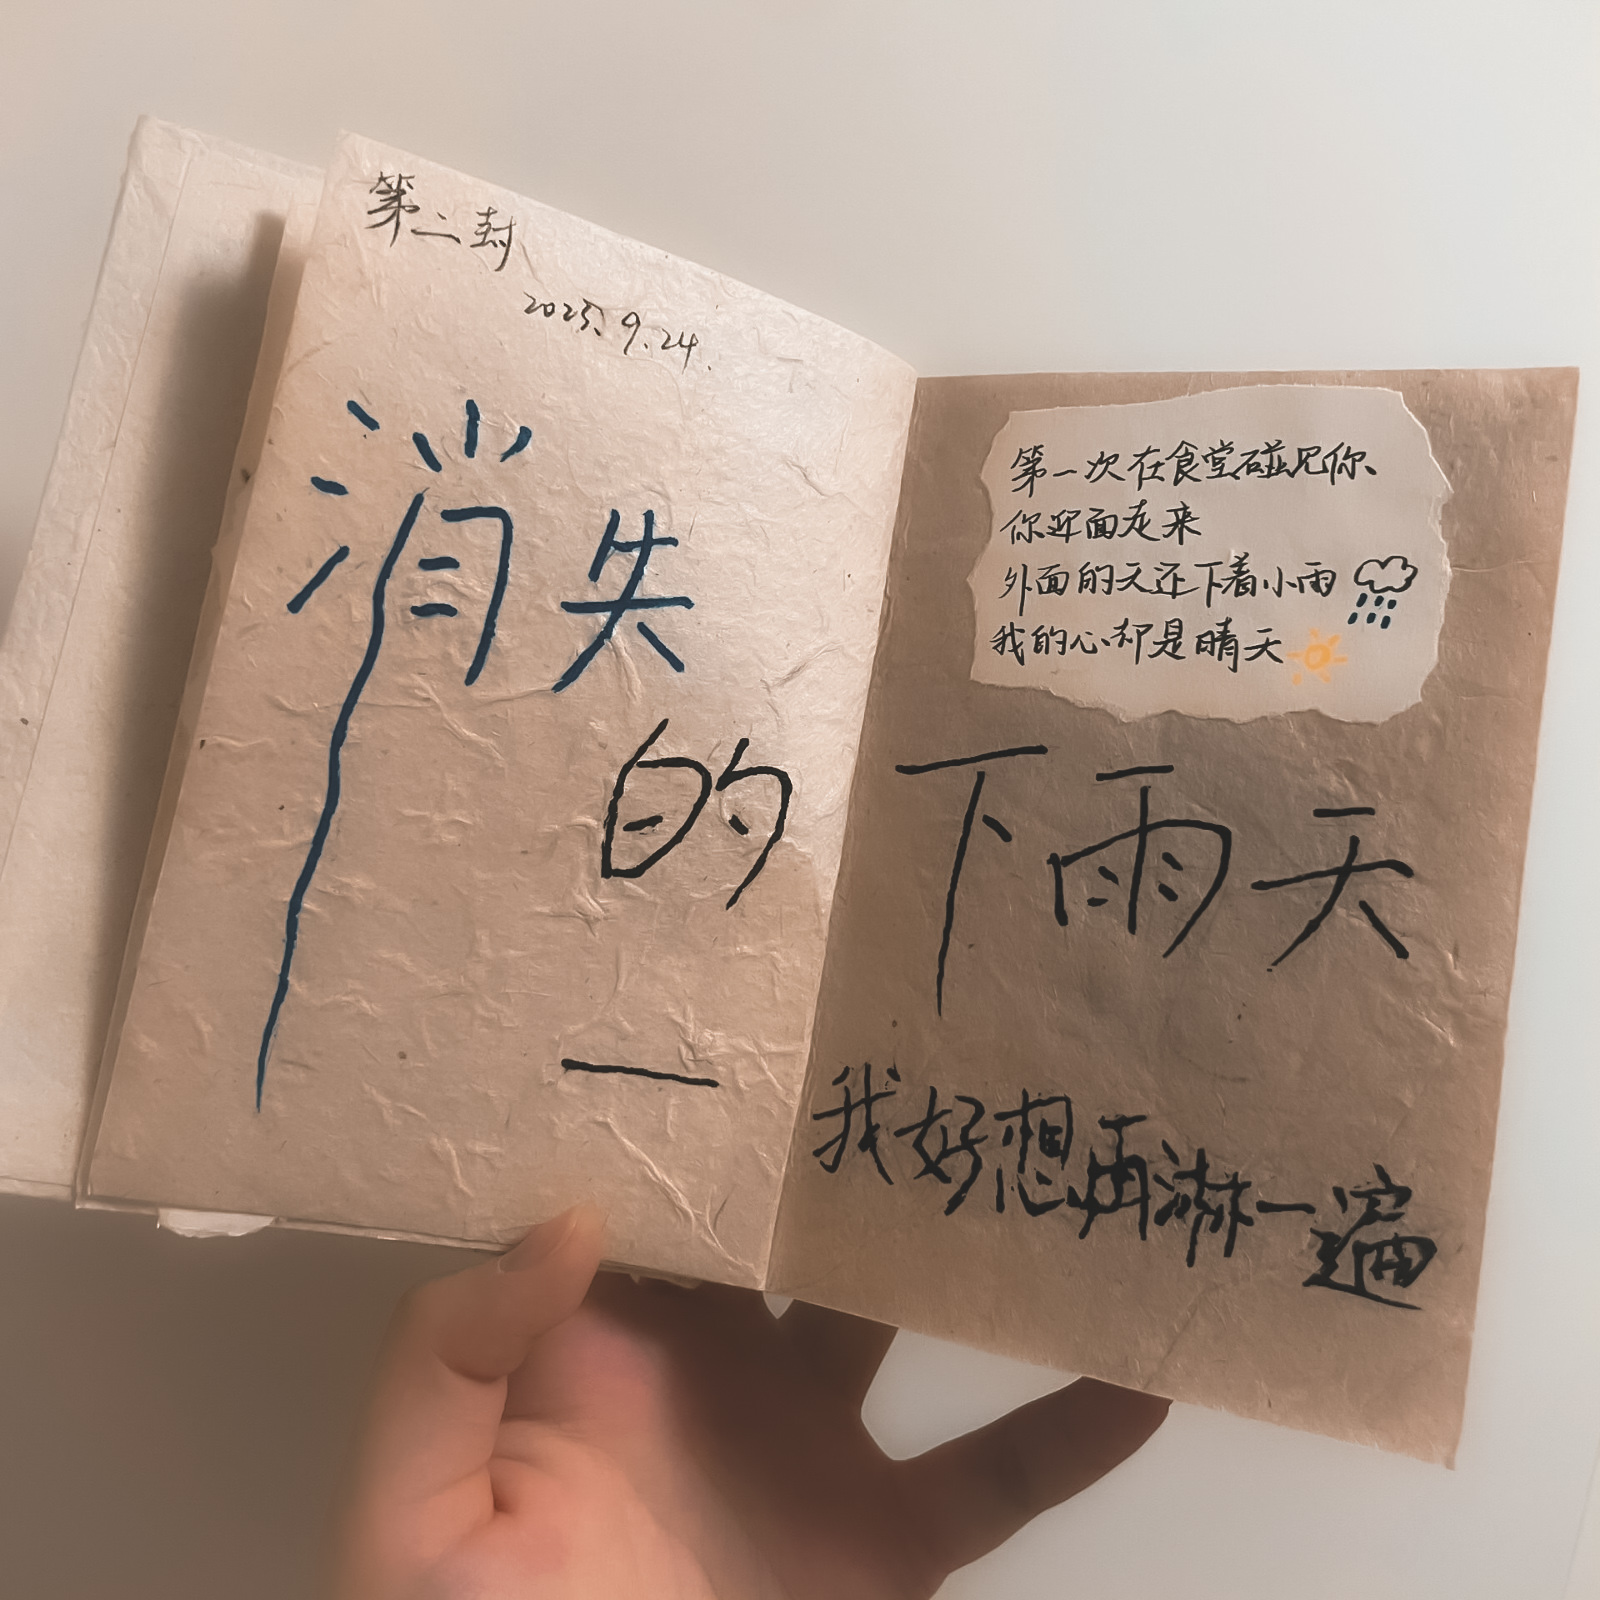 第二封
2025.9.24.
消失
的
第一次在食堂碰见你、
你迎面走来
外面的天还下着小雨
我的心却是晴天
下雨天
一
我好想再淋一遍